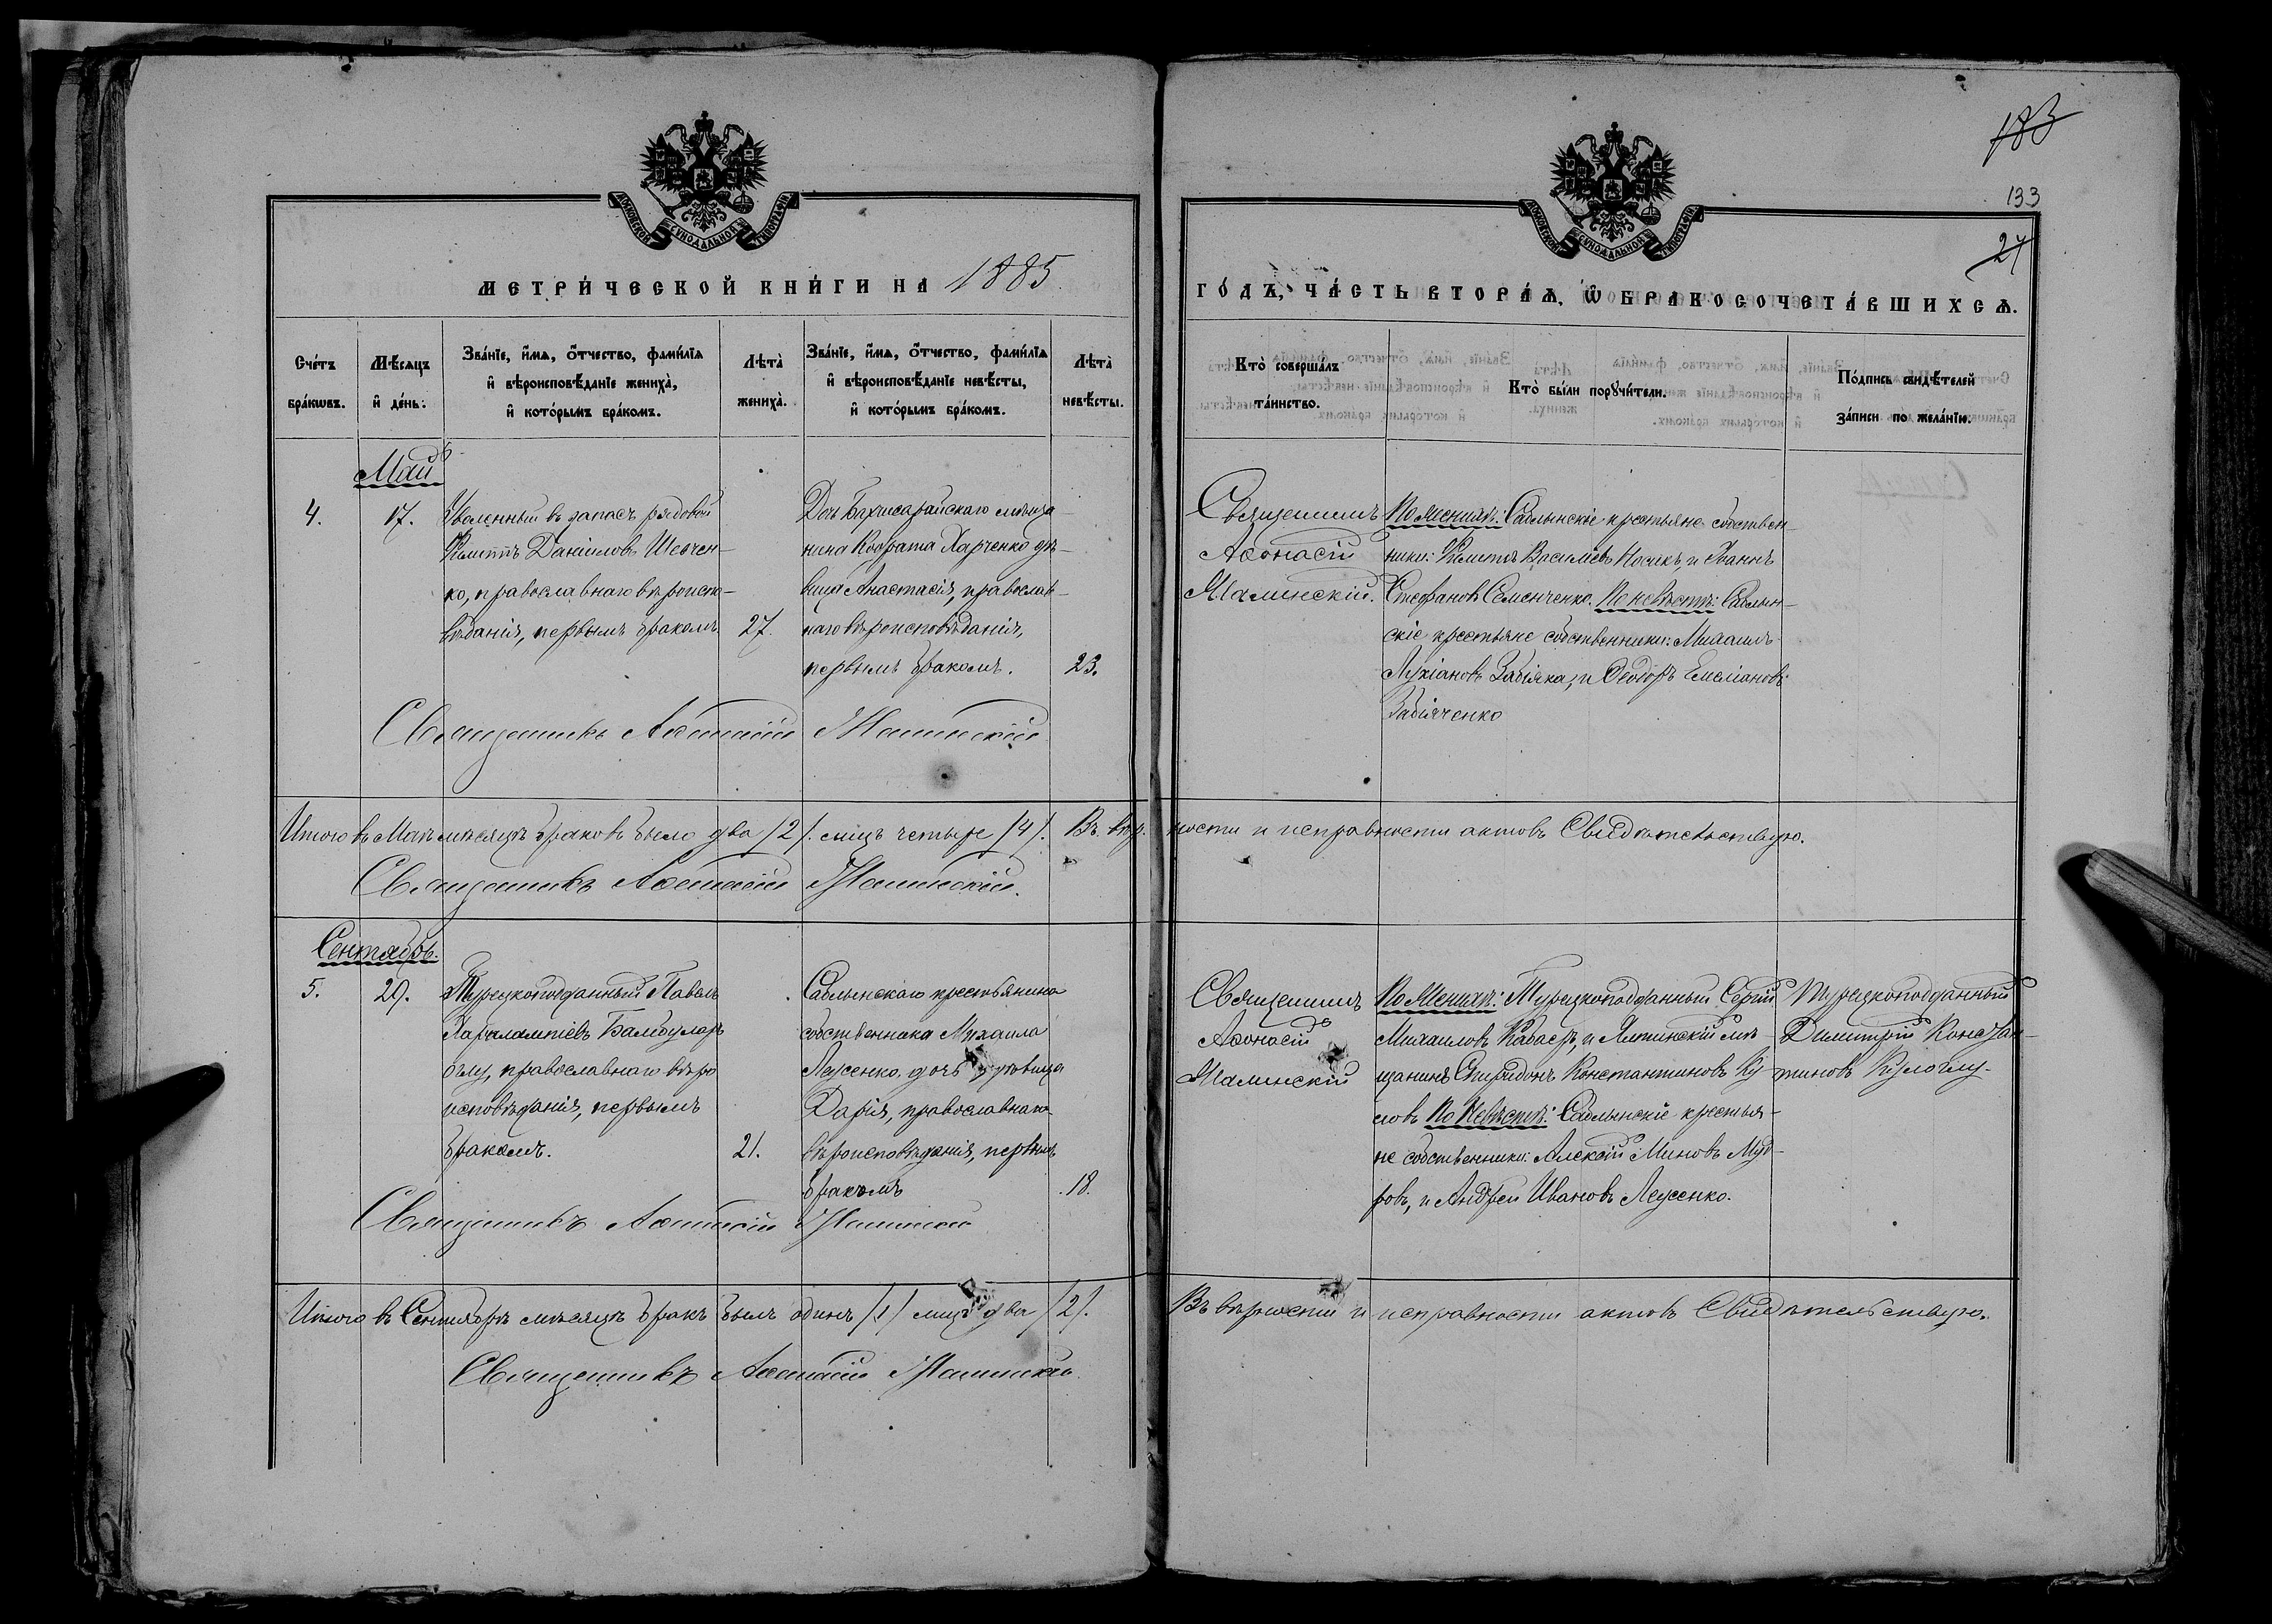 183
133
27
МОСКОВСКОЙ СУНОДАЛЬНОЙ ТИПОГРАФІИ
МОСКОВСКОЙ СУНОДАЛЬНОЙ ТИПОГРАФІИ
МЕТРИ́ЧЕСКОЙ КНИ́ГИ НА 1885
ГО́ДЪ, ЧА́СТЬ ВТОРА́Ѧ, Ѡ БРАКОСОЧЕТА́ВШИХСѦ.
Сче́тъ бра́кѡвъ.
Мѣ́сяцъ и҆ де́нь:
Зва́нїе, и҆́мѧ, о҆́тчество, фами́лїѧ и҆ вѣроисповѣ́данїе жениха̀, и҆ кото́рымъ бра́комъ.
Лѣта̀ жениха̀.
Зва́нїе, и҆́мѧ, о҆́тчество, фами́лїѧ и҆ вѣроисповѣ́данїе невѣ́сты, и҆ кото́рымъ бра́комъ.
Лѣта̀ невѣ́сты.
Кто̀ соверша́лъ та́инство.
Кто̀ бы́ли порꙋчи́тели.
По́дпись свидѣ́телей за́писи по жела́нїю.
Май
4.
17.
Уволенный въ запасъ рядовой
Даніиловъ Шевчен-
ко, православнаго вѣроиспо-
вѣданія, первымъ бракомъ.
27.
Дочь Бахчисарайскаго мѣща-
нина Кодрата Харченко дѣ-
вица Анастасія, православ-
наго вѣроисповѣданія,
первымъ бракомъ.
23.
Священникъ
Аѳонасій
Малинскій.
По женихѣ: Саблынскіе крестьяне собствен-
ники: Василіевъ Носикъ, и Іоаннъ
Стефановъ Семенченко. По невѣстѣ: Саблын-
скіе крестьяне собственники: Михаилъ
Лукіановъ Забіяка, и Ѳеодоръ Емеліановъ
Забіяченко
Священникъ Аѳанасій Малинскій
Итого въ Маѣ мѣсяцѣ браковъ было два /2/. лицъ четыре /4/. Въ вѣр-
ности и исправности актовъ Свидѣтельствую.
Священникъ Аѳанасій Малинскій.
Сентябрь.
5.
29.
Турецкоподданный Павелъ
Харалампіевъ
оглу, православнаго вѣро
исповѣданія, первымъ
бракомъ.
21.
Саблынскаго крестьянина
собственника Михаила
Леусенко дочь дѣвица
Дарія, православнаго
вѣроисповѣданія, первымъ
бракомъ
18.
Священникъ
Аѳонасій
Малинскій
По женихѣ: Турецкоподданный Сергій
Михаиловъ и Ялтинскій мѣ-
щанинъ Спиридонъ Константиновъ Ку-
ловъ По невѣстѣ: Саблынскіе крестья-
не собственники: Алексій Миновъ Муд-
ровъ, и Андрей Ивановъ Леусенко.
Турецкоподданный
Димитрій Констан-
тиновъ Кулоглу.
Священникъ Аѳанасій Малинскій
Итого въ Сентябрѣ мѣсяцѣ бракъ былъ одинъ /1/ лицъ два /2/.
Въ вѣрности и исправности актовъ Свидѣтельствую.
Священникъ Аѳанасій Малинскій